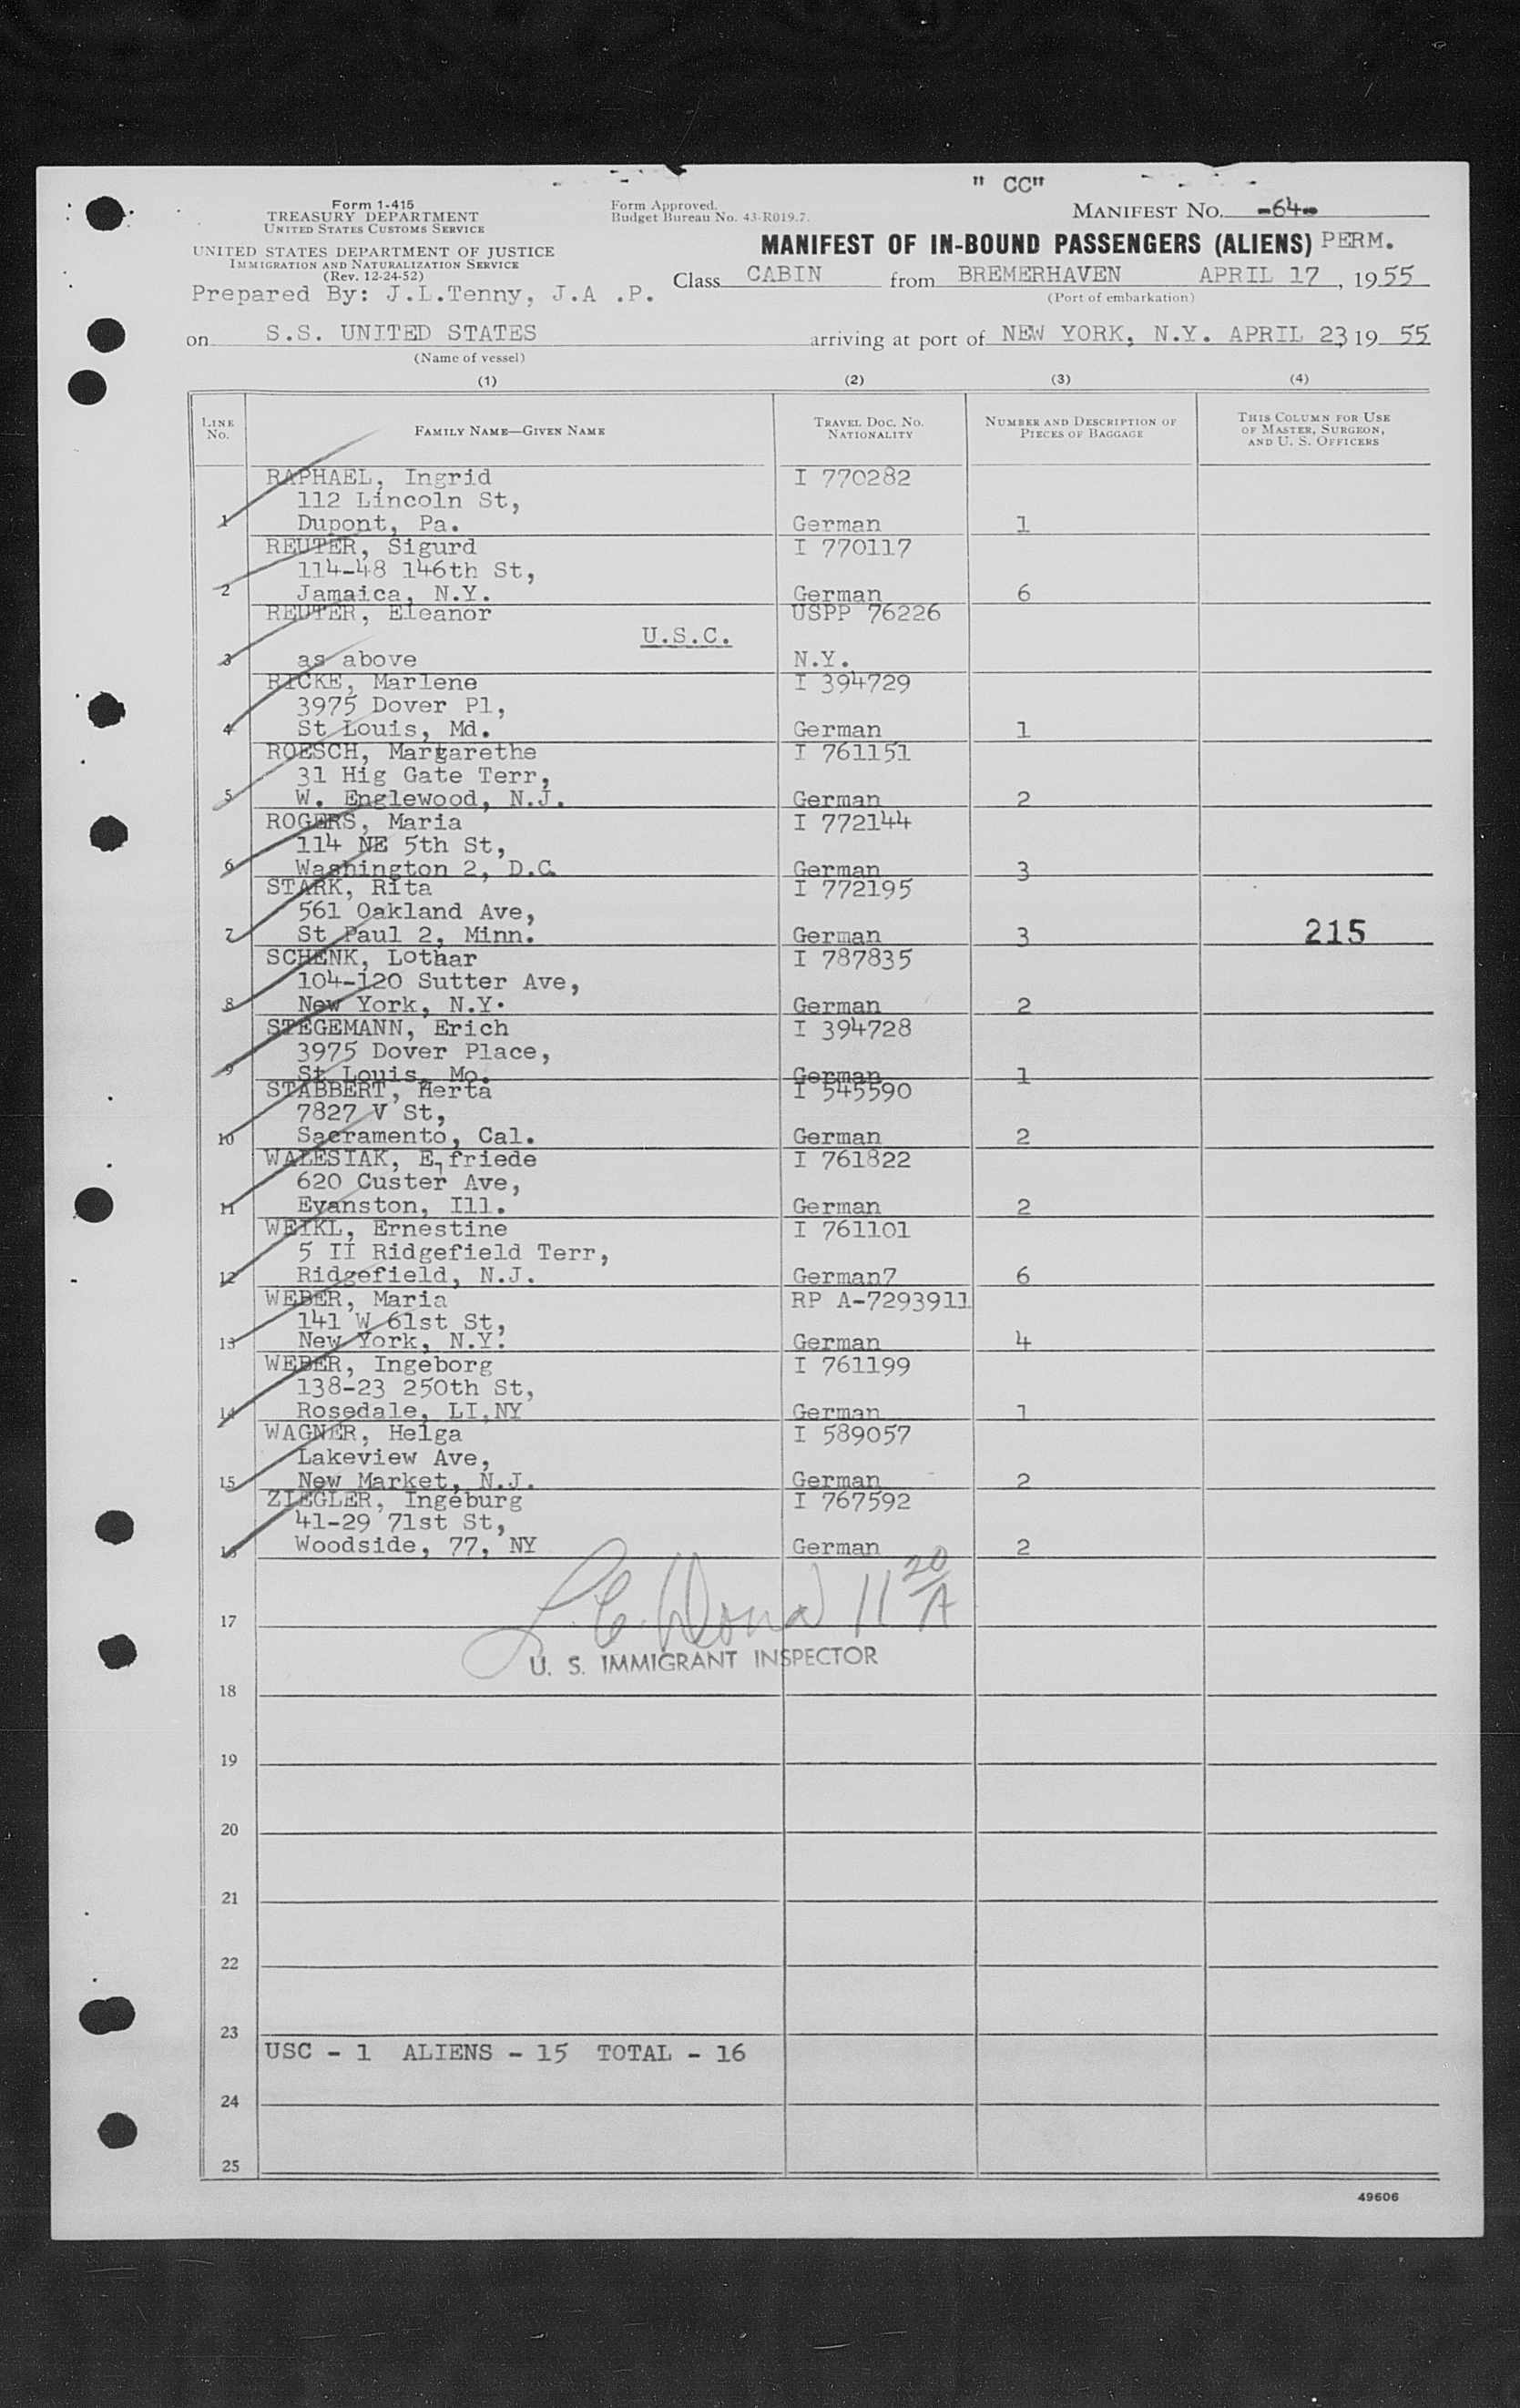 " CC"
Form 1-415
TREASURY DEPARTMENT
UNITED STATES CUSTOMS SERVICE
Form Approved.
Budget Bureau No. 43-R019.7.
MANIFEST No. -64-
UNITED STATES DEPARTMENT OF JUSTICE
IMMIGRATION AND NATURALIZATION SERVICE
(Rev. 12-24-52)
MANIFEST OF IN-BOUND PASSENGERS (ALIENS) PERM.
Prepared By: J.L.Tenny, J.A .P.
Class CABIN from BREMERHAVEN APRIL 17, 1955
(Port of embarkation)
on S.S. UNITED STATES arriving at port of NEW YORK, N.Y. APRIL 23 19 55
(Name of vessel)
(1) (2) (3) (4)
LINE No. FAMILY NAME—GIVEN NAME TRAVEL DOC. No. NATIONALITY NUMBER AND DESCRIPTION OF PIECES OF BAGGAGE THIS COLUMN FOR USE OF MASTER, SURGEON, AND U. S. OFFICERS
RAPHAEL, Ingrid I 770282
112 Lincoln St,
1 Dupont, Pa. German 1
REUTER, Sigurd I 770117
114-48 146th St,
2 Jamaica, N.Y. German 6
REUTER, Eleanor USPP 76226
U.S.C.
3 as above N.Y.
RICKE, Marlene I 394729
3975 Dover Pl,
4 St Louis, Md. German 1
ROESCH, Margarethe I 761151
31 Hig Gate Terr,
5 W. Englewood, N.J. German 2
ROGERS, Maria I 772144
114 NE 5th St,
6 Washington 2, D.C. German 3
STARK, Rita I 772195
561 Oakland Ave,
7 St Paul 2, Minn. German 3 215
SCHENK, Lothar I 787835
104-120 Sutter Ave,
8 New York, N.Y. German 2
STEGEMANN, Erich I 394728
3975 Dover Place,
9 St Louis, Mo. German 1
STABBERT, Herta I 545590
7827 V St,
10 Sacramento, Cal. German 2
WALESIAK, Elfriede I 761822
620 Custer Ave,
11 Evanston, Ill. German 2
WEIKL, Ernestine I 761101
5 II Ridgefield Terr,
12 Ridgefield, N.J. German7 6
WEBER, Maria RP A-7293911
141 W 61st St,
13 New York, N.Y. German 4
WEBER, Ingeborg I 761199
138-23 250th St,
14 Rosedale, LI,NY German 1
WAGNER, Helga I 589057
Lakeview Ave,
15 New Market, N.J. German 2
ZIEGLER, Ingeburg I 767592
41-29 71st St,
16 Woodside, 77, NY German 2
11 20/A
17
U. S. IMMIGRANT INSPECTOR
18
19
20
21
22
23
USC - 1 ALIENS - 15 TOTAL - 16
24
25
49606